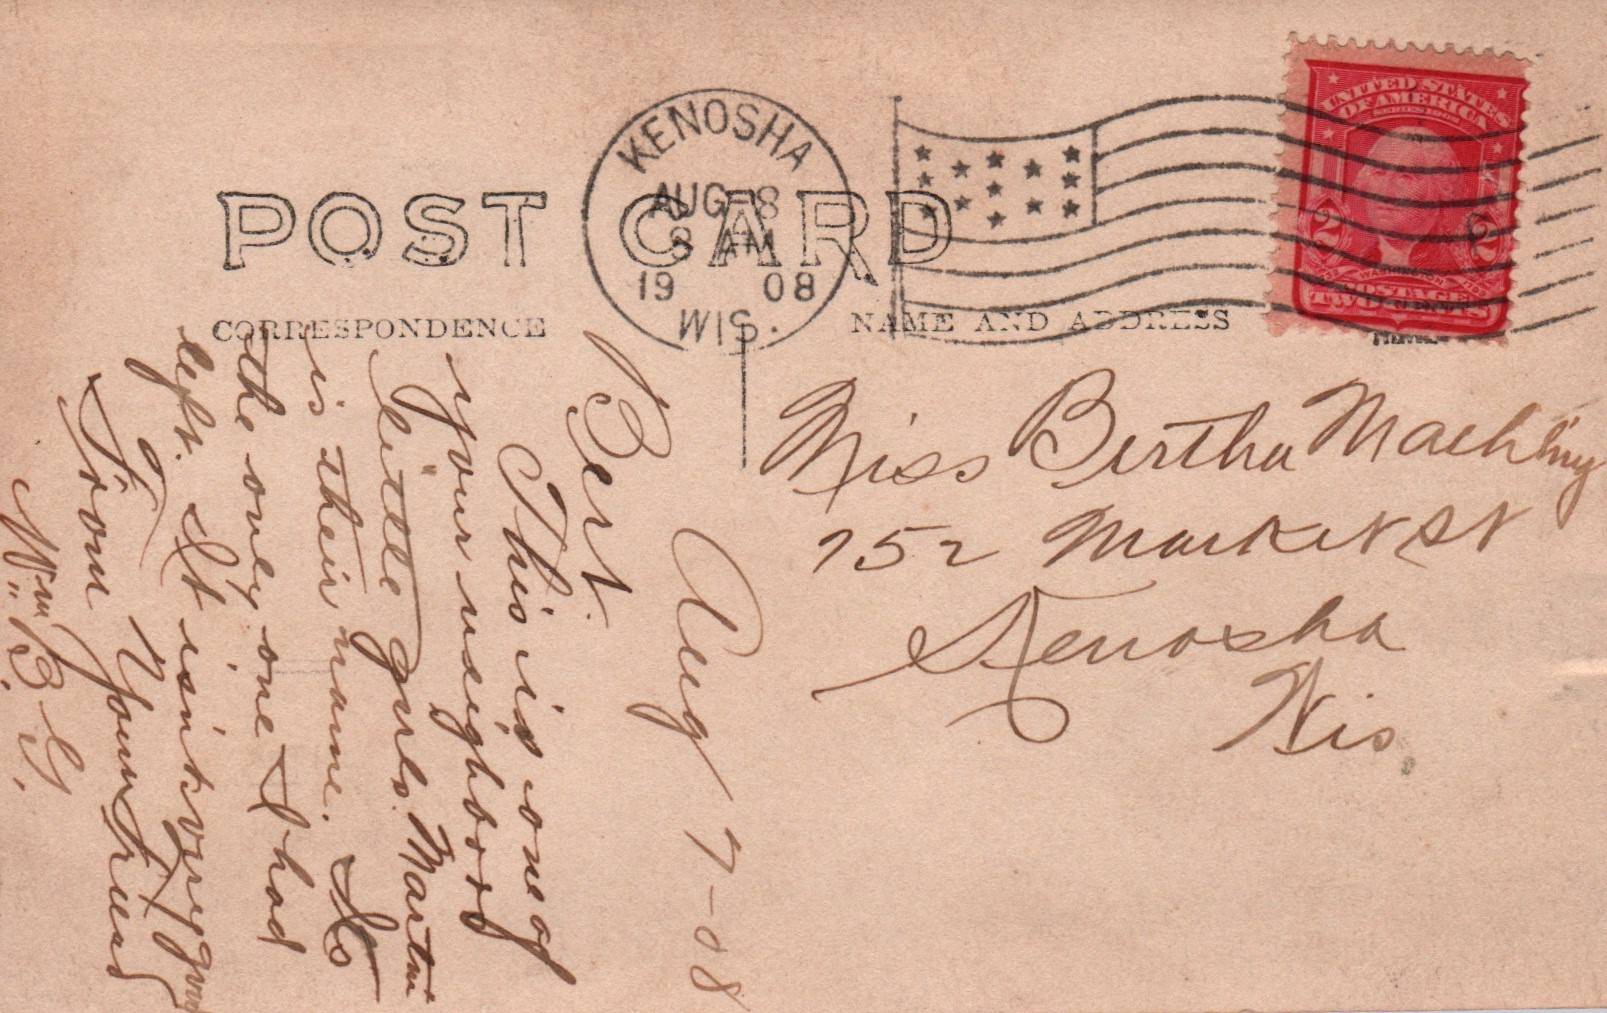 POST CARD
CORRESPONDENCE
NAME AND ADDRESS
KENOSHA
AUG 8
8 AM
1908
WIS.
UNITED STATES
OF AMERICA
2 2
POSTAGE
TWO CENTS
Miss Bertha
752 Market St
Kenosha
Wis.
Aug 7-08
Bert.
This is one of
your neighbors
little girls. Martin
is their name. Its
the only one I had
left. It isint very good
From Your Friend
Wm B. G.